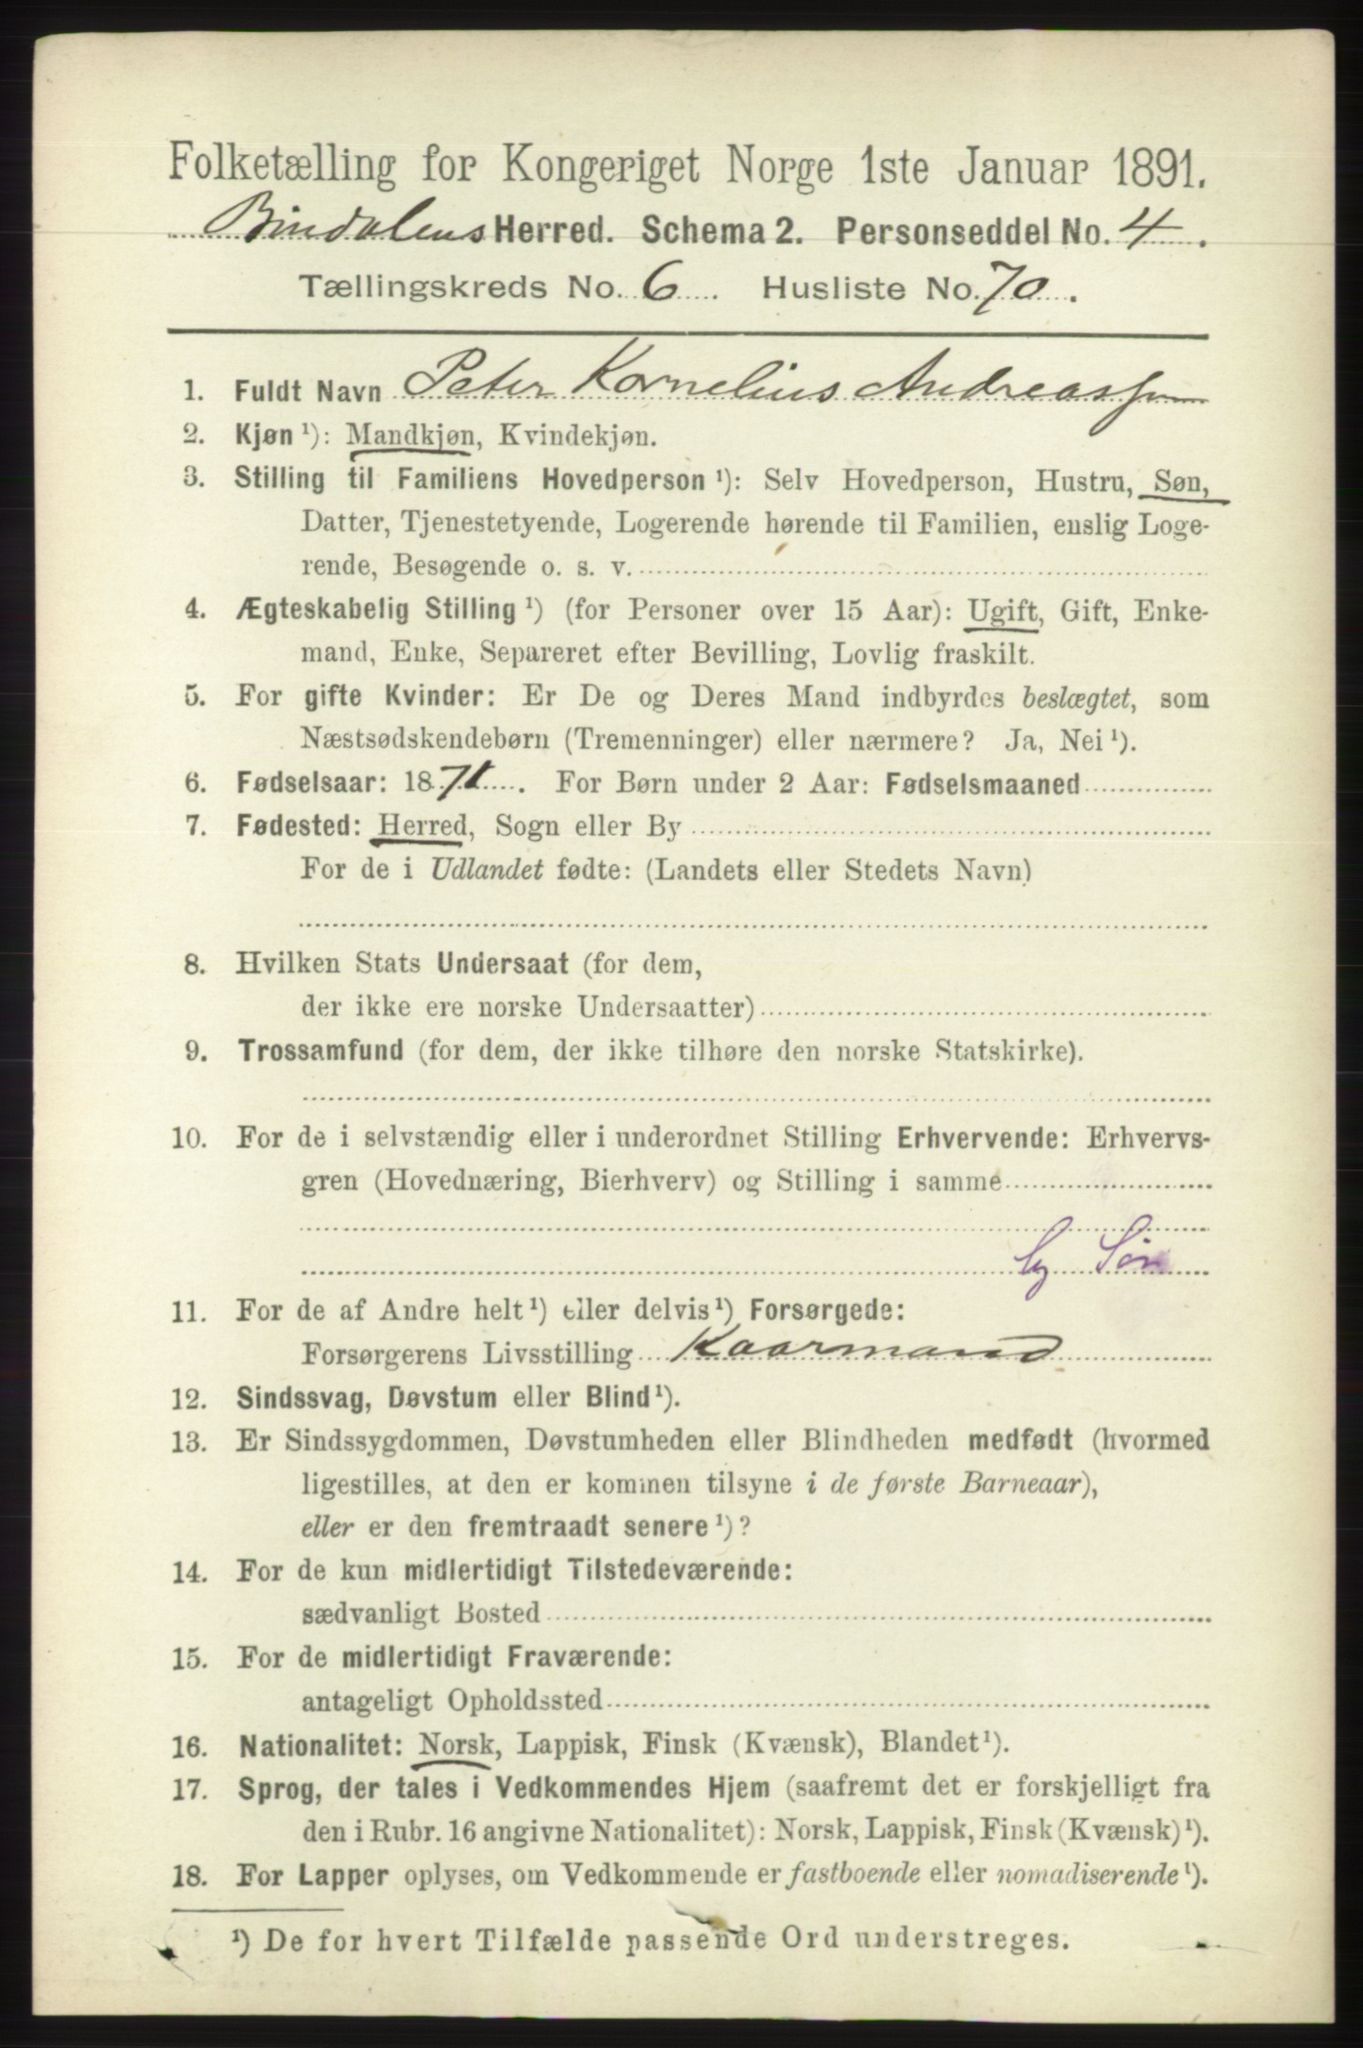 Folketælling for Kongeriget Norge 1ste Januar 1891.
Bindalens Herred. Schema 2. Personseddel No. 4.
Tællingskreds No. 6. Husliste No. 70.
1. Fuldt Navn Peter Kornelius Andreassen
2. Kjøn ¹): Mandkjøn, Kvindekjøn.
3. Stilling til Familiens Hovedperson ¹): Selv Hovedperson, Hustru, Søn,
Datter, Tjenestetyende, Logerende hørende til Familien, enslig Loge-
rende, Besøgende o. s. v.
4. Ægteskabelig Stilling ¹) (for Personer over 15 Aar): Ugift, Gift, Enke-
mand, Enke, Separeret efter Bevilling, Lovlig fraskilt.
5. For gifte Kvinder: Er De og Deres Mand indbyrdes beslægtet, som
Næstsødskendebørn (Tremenninger) eller nærmere? Ja, Nei ¹).
6. Fødselsaar: 1871. For Børn under 2 Aar: Fødselsmaaned
7. Fødested: Herred, Sogn eller By
For de i Udlandet fødte: (Landets eller Stedets Navn)
8. Hvilken Stats Undersaat (for dem,
der ikke ere norske Undersaatter)
9. Trossamfund (for dem, der ikke tilhøre den norske Statskirke).
10. For de i selvstændig eller i underordnet Stilling Erhvervende: Erhvervs-
gren (Hovednæring, Bierhverv) og Stilling i samme
Søn
11. For de af Andre helt ¹) eller delvis ¹) Forsørgede:
Forsørgerens Livsstilling Kaarmand
12. Sindssvag, Døvstum eller Blind ¹).
13. Er Sindssygdommen, Døvstumheden eller Blindheden medfødt (hvormed
ligestilles, at den er kommen tilsyne i de første Barneaar),
eller er den fremtraadt senere ¹)?
14. For de kun midlertidigt Tilstedeværende:
sædvanligt Bosted
15. For de midlertidigt Fraværende:
antageligt Opholdssted
16. Nationalitet: Norsk, Lappisk, Finsk (Kvænsk), Blandet ¹).
17. Sprog, der tales i Vedkommendes Hjem (saafremt det er forskjelligt fra
den i Rubr. 16 angivne Nationalitet): Norsk, Lappisk, Finsk (Kvænsk) ¹).
18. For Lapper oplyses, om Vedkommende er fastboende eller nomadiserende ¹).
¹) De for hvert Tilfælde passende Ord understreges.